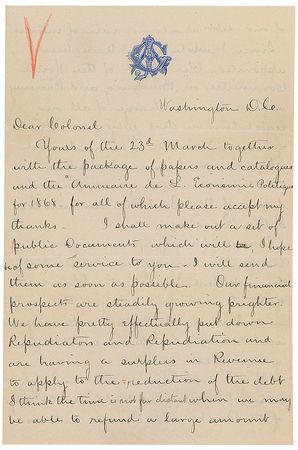 Washington D.C.
Dear Colonel
Yours of the 23d March together
with the package of papers and catalogues
and the "Annuaire de L. Economie Politique
for 1868 for all of which please accept my
thanks. I shall make out a set of
public Documents which will be, I hope
of some service to you - I will send
them as soon as possible. Our financial
prospects are steadily growing brighter.
We have pretty effectually put down
Repudiators and Repudiation and
are having a surplus in Revenue
to apply to the reduction of the debt
I think the time is not far distant when we may
be able to refund a large amount